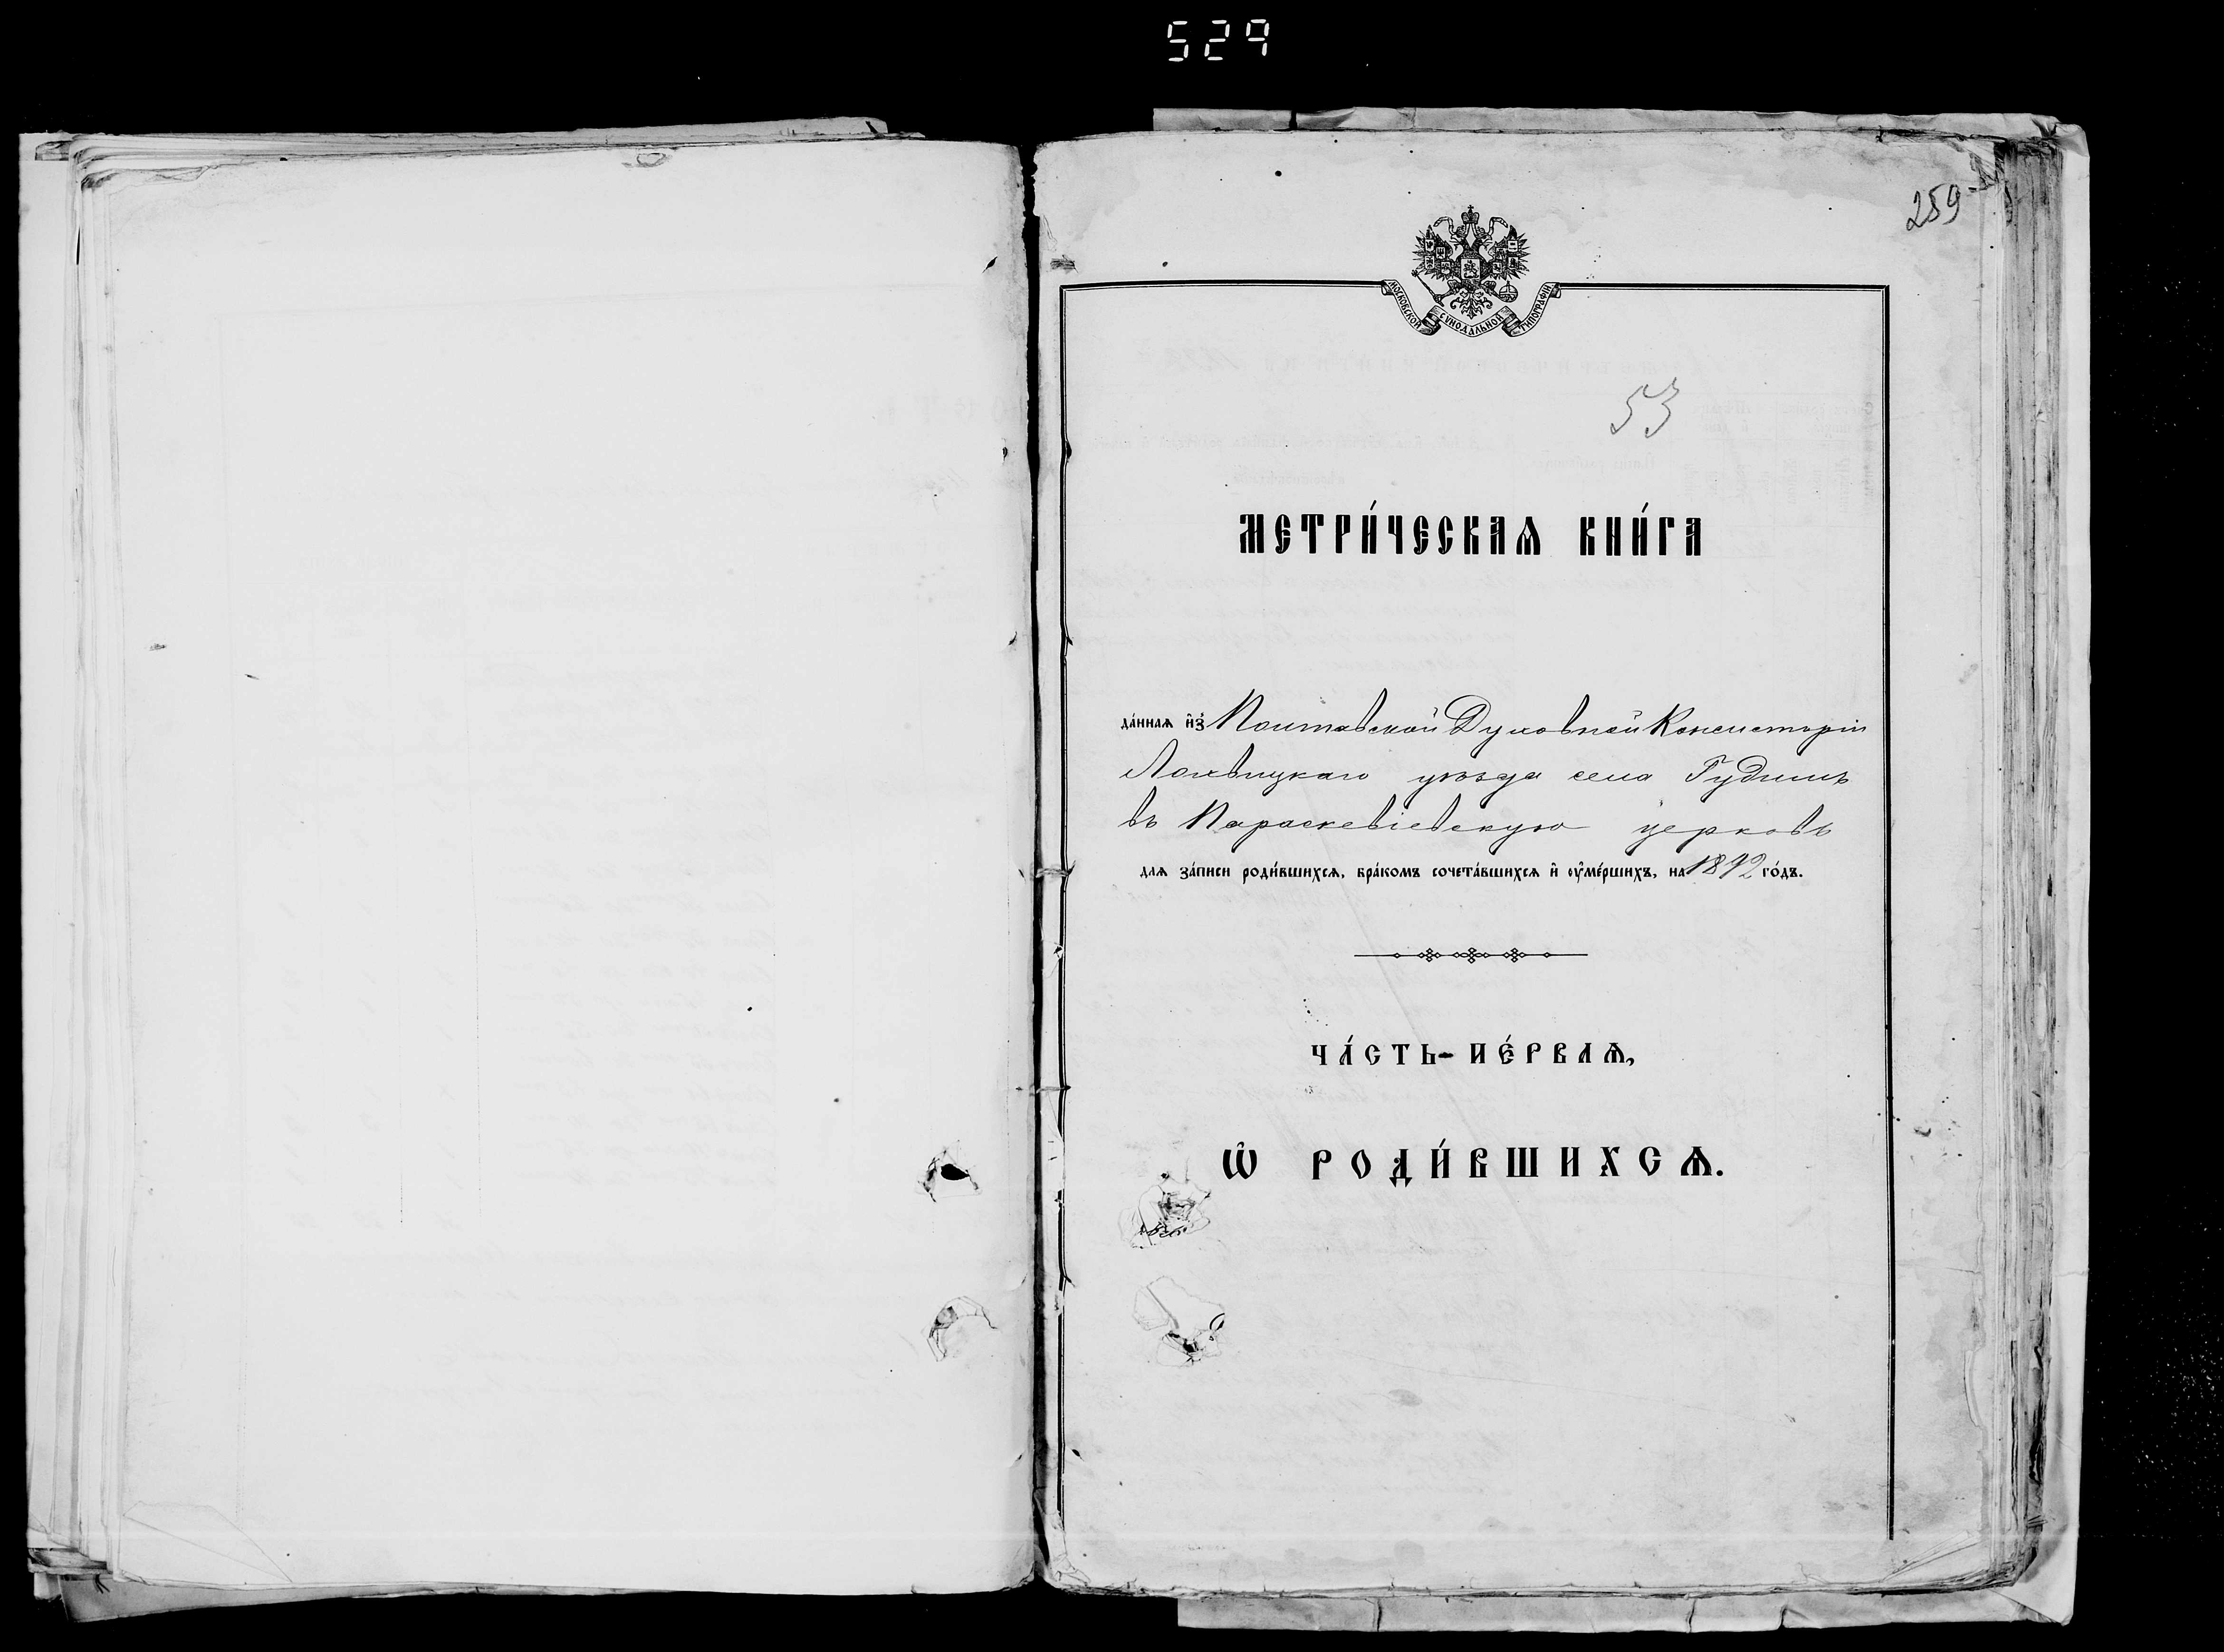 529
259
МОСКОВСКОЙ СѴНОДАЛЬНОЙ ТИПОГРАФІИ
53
МЕТРИ́ЧЕСКАѦ КНИ́ГА
да́ннаѧ и҆з̾ Полтавской Духовной Консисторіи
Лохвицкаго уѣзда села Гудимъ
въ Параскевіевскую церковь
длѧ за́писи роди́вшихсѧ, бра́комъ сочета́вшихсѧ и҆ ᲂу҆ме́ршихъ, на 1892 го́дъ.
ЧА́СТЬ ПЕ́РВАѦ,
Ѡ҆ РОДИ́ВШИХСѦ.